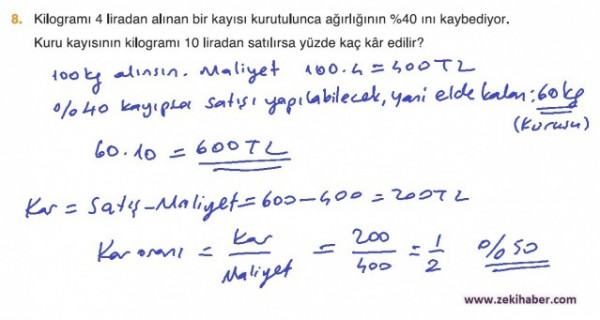 8. Kilogramı 4 liradan alınan bir kayısı kurutulunca ağırlığının %40 ını kaybediyor.
Kuru kayısının kilogramı 10 liradan satılırsa yüzde kaç kâr edilir?
100kg alınsın. Maliyet 100.4=400TL
%40 kayıpla satışı yapılabilecek, yani elde kalan: 60kg
(Kurusu)
60.10 = 600TL
Kar = Satış-Maliyet=600-400=200TL
Kar oranı = Kar/Maliyet = 200/400 = 1/2 %50
www.zekihaber.com